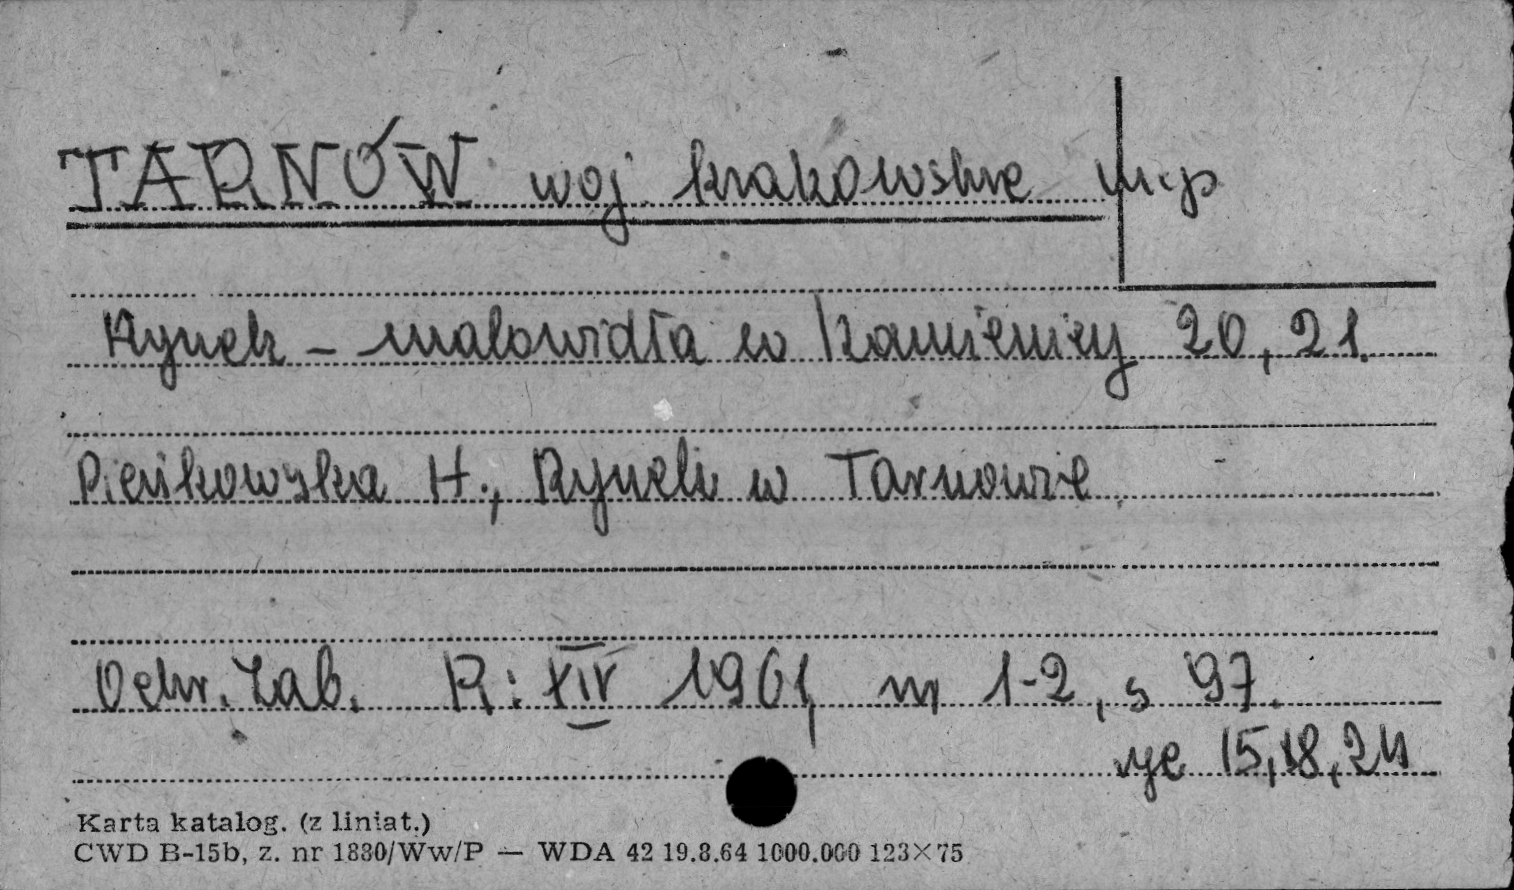 TARNÓW woj. krakowskie m.p
Rynek – malowidła w kamienicy 20, 21.
Pieńkowska H., Rynek w Tarnowie
Ochr. Zab. R: XIV 1961, nr 1-2, s 97.
ryc 15, 18, 24
Karta katalog. (z liniat.)
CWD B-15b, z. nr 1830/Ww/P — WDA 42 19.8.64 1000.000 123×75